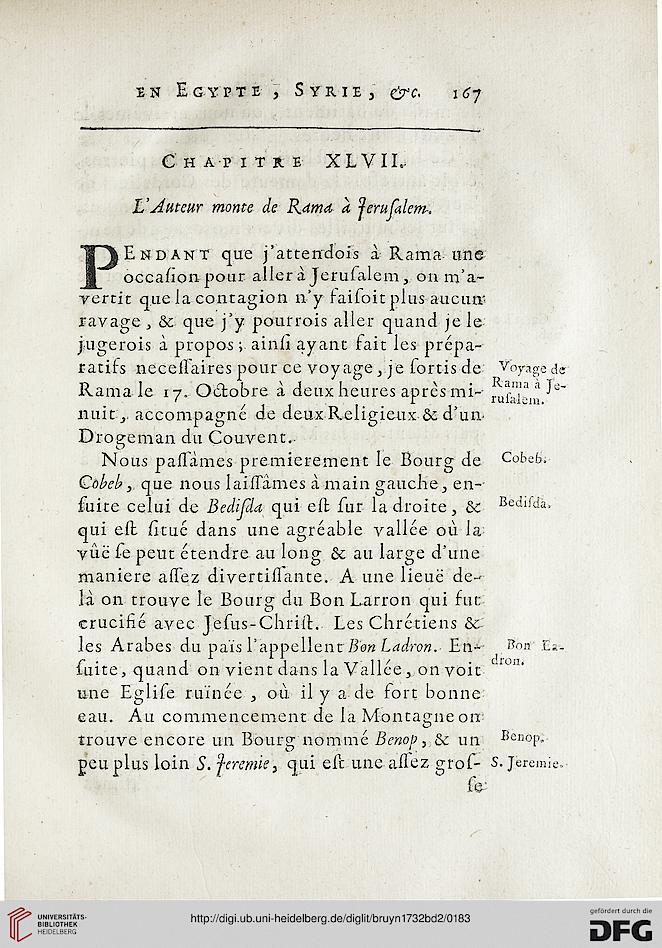 EN EGYPTE, SYRIE, &c. 167
CHAPITRE XLVII.
L'Auteur monte de Rama à Jeruſalem.
PENDANT que j'attendois à Rama une
occaſion pour aller à Jeruſalem, on m'a-
vertit que la contagion n'y faiſoit plus aucun
ravage, & que j'y pourrois aller quand je le
jugerois à propos; ainſi ayant fait les prépa-
ratifs neceſſaires pour ce voyage, je ſortis de
Rama le 17. Octobre à deux heures après mi-
nuit, accompagné de deux Religieux & d'un
Drogeman du Couvent.
Voyage de
Rama à Je-
ruſalem.
Nous paſſâmes premierement le Bourg de
Cobeb, que nous laiſſâmes à main gauche, en-
ſuite celui de Bediſda qui eſt ſur la droite, &
qui eſt ſitué dans une agréable vallée où la
vûë ſe peut étendre au long & au large d'une
maniere aſſez divertiſſante. A une lieuë de-
là on trouve le Bourg du Bon Larron qui fut
crucifié avec Jeſus-Chriſt. Les Chrétiens &
les Arabes du païs l'appellent Bon Ladron. En-
ſuite, quand on vient dans la Vallée, on voit
une Egliſe ruïnée, où il y a de fort bonne
eau. Au commencement de la Montagne on
trouve encore un Bourg nommé Benop, & un
peu plus loin S. Jeremie, qui eſt une aſſez groſ-
ſe
Cobeb.
Bediſda.
Bon La-
dron.
Benop.
S. Jeremie.
UNIVERSITÄTS-
BIBLIOTHEK
HEIDELBERG
http://digi.ub.uni-heidelberg.de/diglit/bruyn1732bd2/0183
gefördert durch die
DFG